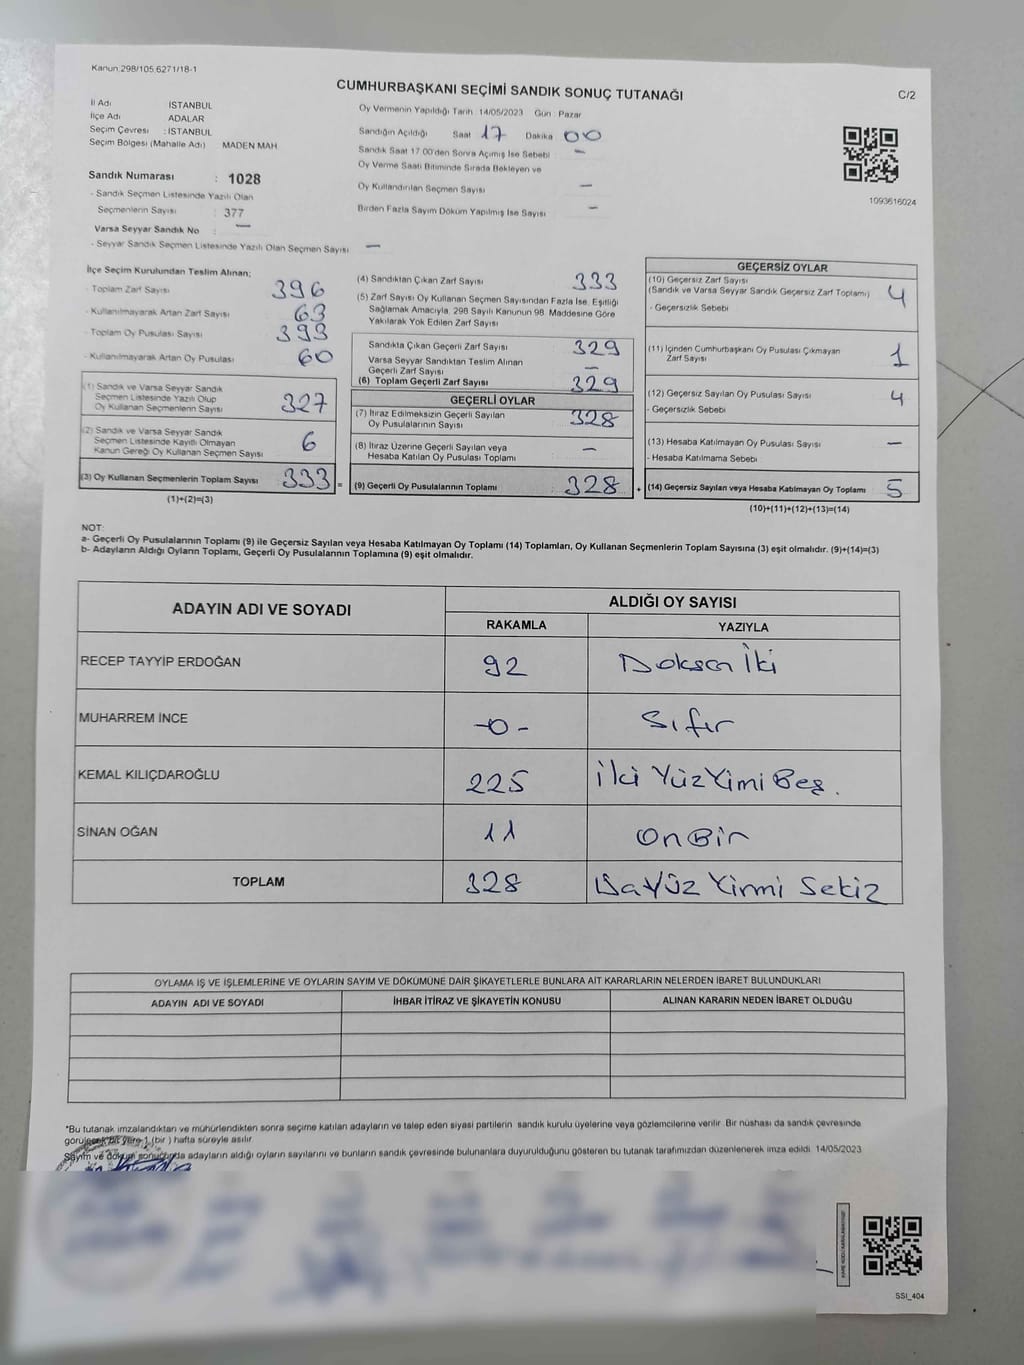 Kanun:298/105.6271/18-1
CUMHURBAŞKANI SEÇİMİ SANDIK SONUÇ TUTANAĞI
C/2
İl Adı İSTANBUL
İlçe Adı ADALAR
Seçim Çevresi : İSTANBUL
Seçim Bölgesi (Mahalle Adı) MADEN MAH.
Sandık Numarası : 1028
- Sandık Seçmen Listesinde Yazılı Olan
Seçmenlerin Sayısı : 377
Varsa Seyyar Sandık No : -
- Seyyar Sandık Seçmen Listesinde Yazılı Olan Seçmen Sayısı -
Oy Vermenin Yapıldığı Tarih : 14/05/2023 Gün : Pazar
Sandığın Açıldığı Saat 17 Dakika 00
Sandık Saat 17.00'den Sonra Açımış İse Sebebi -
Oy Verme Saati Bitiminde Sırada Bekleyen ve
Oy Kullandırılan Seçmen Sayısı -
Birden Fazla Sayım Döküm Yapılmış İse Sayısı -
1093616024
İlçe Seçim Kurulundan Teslim Alınan;
- Toplam Zarf Sayısı 396
- Kullanılmayarak Artan Zarf Sayısı 63
- Toplam Oy Pusulası Sayısı 393
- Kullanılmayarak Artan Oy Pusulası 60
(1) Sandık ve Varsa Seyyar Sandık
Seçmen Listesinde Yazılı Olup
Oy Kullanan Seçmenlerin Sayısı 327
(2) Sandık ve Varsa Seyyar Sandık
Seçmen Listesinde Kayıtlı Olmayan
Kanun Gereği Oy Kullanan Seçmen Sayısı 6
(3) Oy Kullanan Seçmenlerin Toplam Sayısı 333 =
(1)+(2)=(3)
(4) Sandıktan Çıkan Zarf Sayısı 333
(5) Zarf Sayısı Oy Kullanan Seçmen Sayısından Fazla İse, Eşitliği
Sağlamak Amacıyla, 298 Sayılı Kanunun 98. Maddesine Göre
Yakılarak Yok Edilen Zarf Sayısı
Sandıkta Çıkan Geçerli Zarf Sayısı 329
Varsa Seyyar Sandıktan Teslim Alınan
Geçerli Zarf Sayısı -
(6) Toplam Geçerli Zarf Sayısı 329
GEÇERLİ OYLAR
(7) İtiraz Edilmeksizin Geçerli Sayılan
Oy Pusulalarının Sayısı 328
(8) İtiraz Üzerine Geçerli Sayılan veya
Hesaba Katılan Oy Pusulası Toplamı -
(9) Geçerli Oy Pusulalarının Toplamı 328 +
GEÇERSİZ OYLAR
(10) Geçersiz Zarf Sayısı
(Sandık ve Varsa Seyyar Sandık Geçersiz Zarf Toplamı) 4
- Geçersizlik Sebebi
(11) İçinden Cumhurbaşkanı Oy Pusulası Çıkmayan
Zarf Sayısı 1
(12) Geçersiz Sayılan Oy Pusulası Sayısı 4
- Geçersizlik Sebebi
(13) Hesaba Katılmayan Oy Pusulası Sayısı -
- Hesaba Katılmama Sebebi
(14) Geçersiz Sayılan veya Hesaba Katılmayan Oy Toplamı 5
(10)+(11)+(12)+(13)=(14)
NOT:
a- Geçerli Oy Pusulalarının Toplamı (9) ile Geçersiz Sayılan veya Hesaba Katılmayan Oy Toplamı (14) Toplamları, Oy Kullanan Seçmenlerin Toplam Sayısına (3) eşit olmalıdır. (9)+(14)=(3)
b- Adayların Aldığı Oyların Toplamı, Geçerli Oy Pusulalarının Toplamına (9) eşit olmalıdır.
ADAYIN ADI VE SOYADI ALDIĞI OY SAYISI
RAKAMLA YAZIYLA
RECEP TAYYİP ERDOĞAN 92 Doksan İki
MUHARREM İNCE -0- Sıfır
KEMAL KILIÇDAROĞLU 225 İki Yüz Yimi Beş.
SİNAN OĞAN 11 On Bir
TOPLAM 328 Yirmi Sekiz
OYLAMA İŞ VE İŞLEMLERİNE VE OYLARIN SAYIM VE DÖKÜMÜNE DAİR ŞİKAYETLERLE BUNLARA AİT KARARLARIN NELERDEN İBARET BULUNDUKLARI
ADAYIN ADI VE SOYADI İHBAR İTİRAZ VE ŞİKAYETİN KONUSU ALINAN KARARIN NEDEN İBARET OLDUĞU
*Bu tutanak imzalandıktan ve mühürlendikten sonra seçime katılan adayların ve talep eden siyasi partilerin sandık kurulu üyelerine veya gözlemcilerine verilir. Bir nüshası da sandık çevresinde
görülecek bir yere 1 (bir ) hafta süreyle asılır
Sayım ve döküm sonucunda adayların aldığı oyların sayılarını ve bunların sandık çevresinde bulunanlara duyurulduğunu gösteren bu tutanak tarafımızdan düzenlenerek imza edildi. 14/05/2023
SSI_404